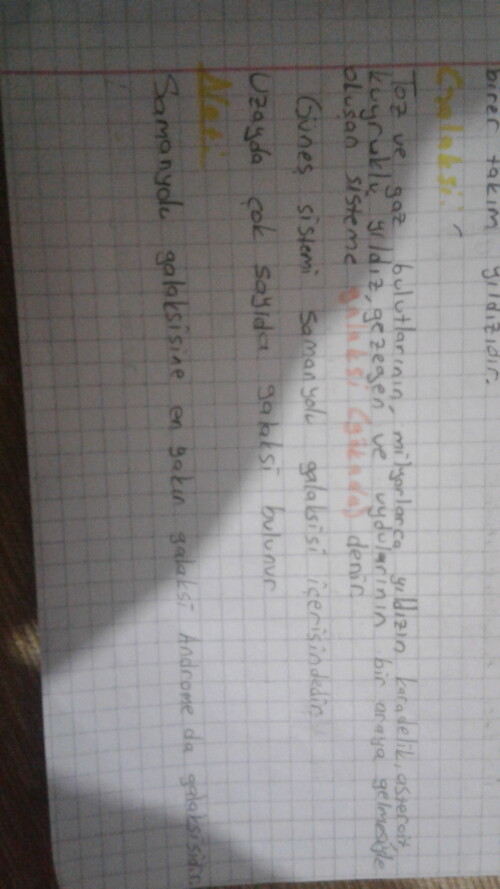 birer takım yıldızıdır.
Galaksi:
Toz ve gaz bulutlarının, milyarlarca yıldızın, karadelik, asteroit,
kuyruklu yıldız, gezegen ve uydularının bir araya gelmesiyle
oluşan sisteme galaksi (gökada) denir.
Güneş sistemi samanyolu galaksisi içerisindedir.
Uzayda çok sayıda galaksi bulunur
Not:
Samanyolu galaksisine en yakın galaksi Andromeda galaksisidir.